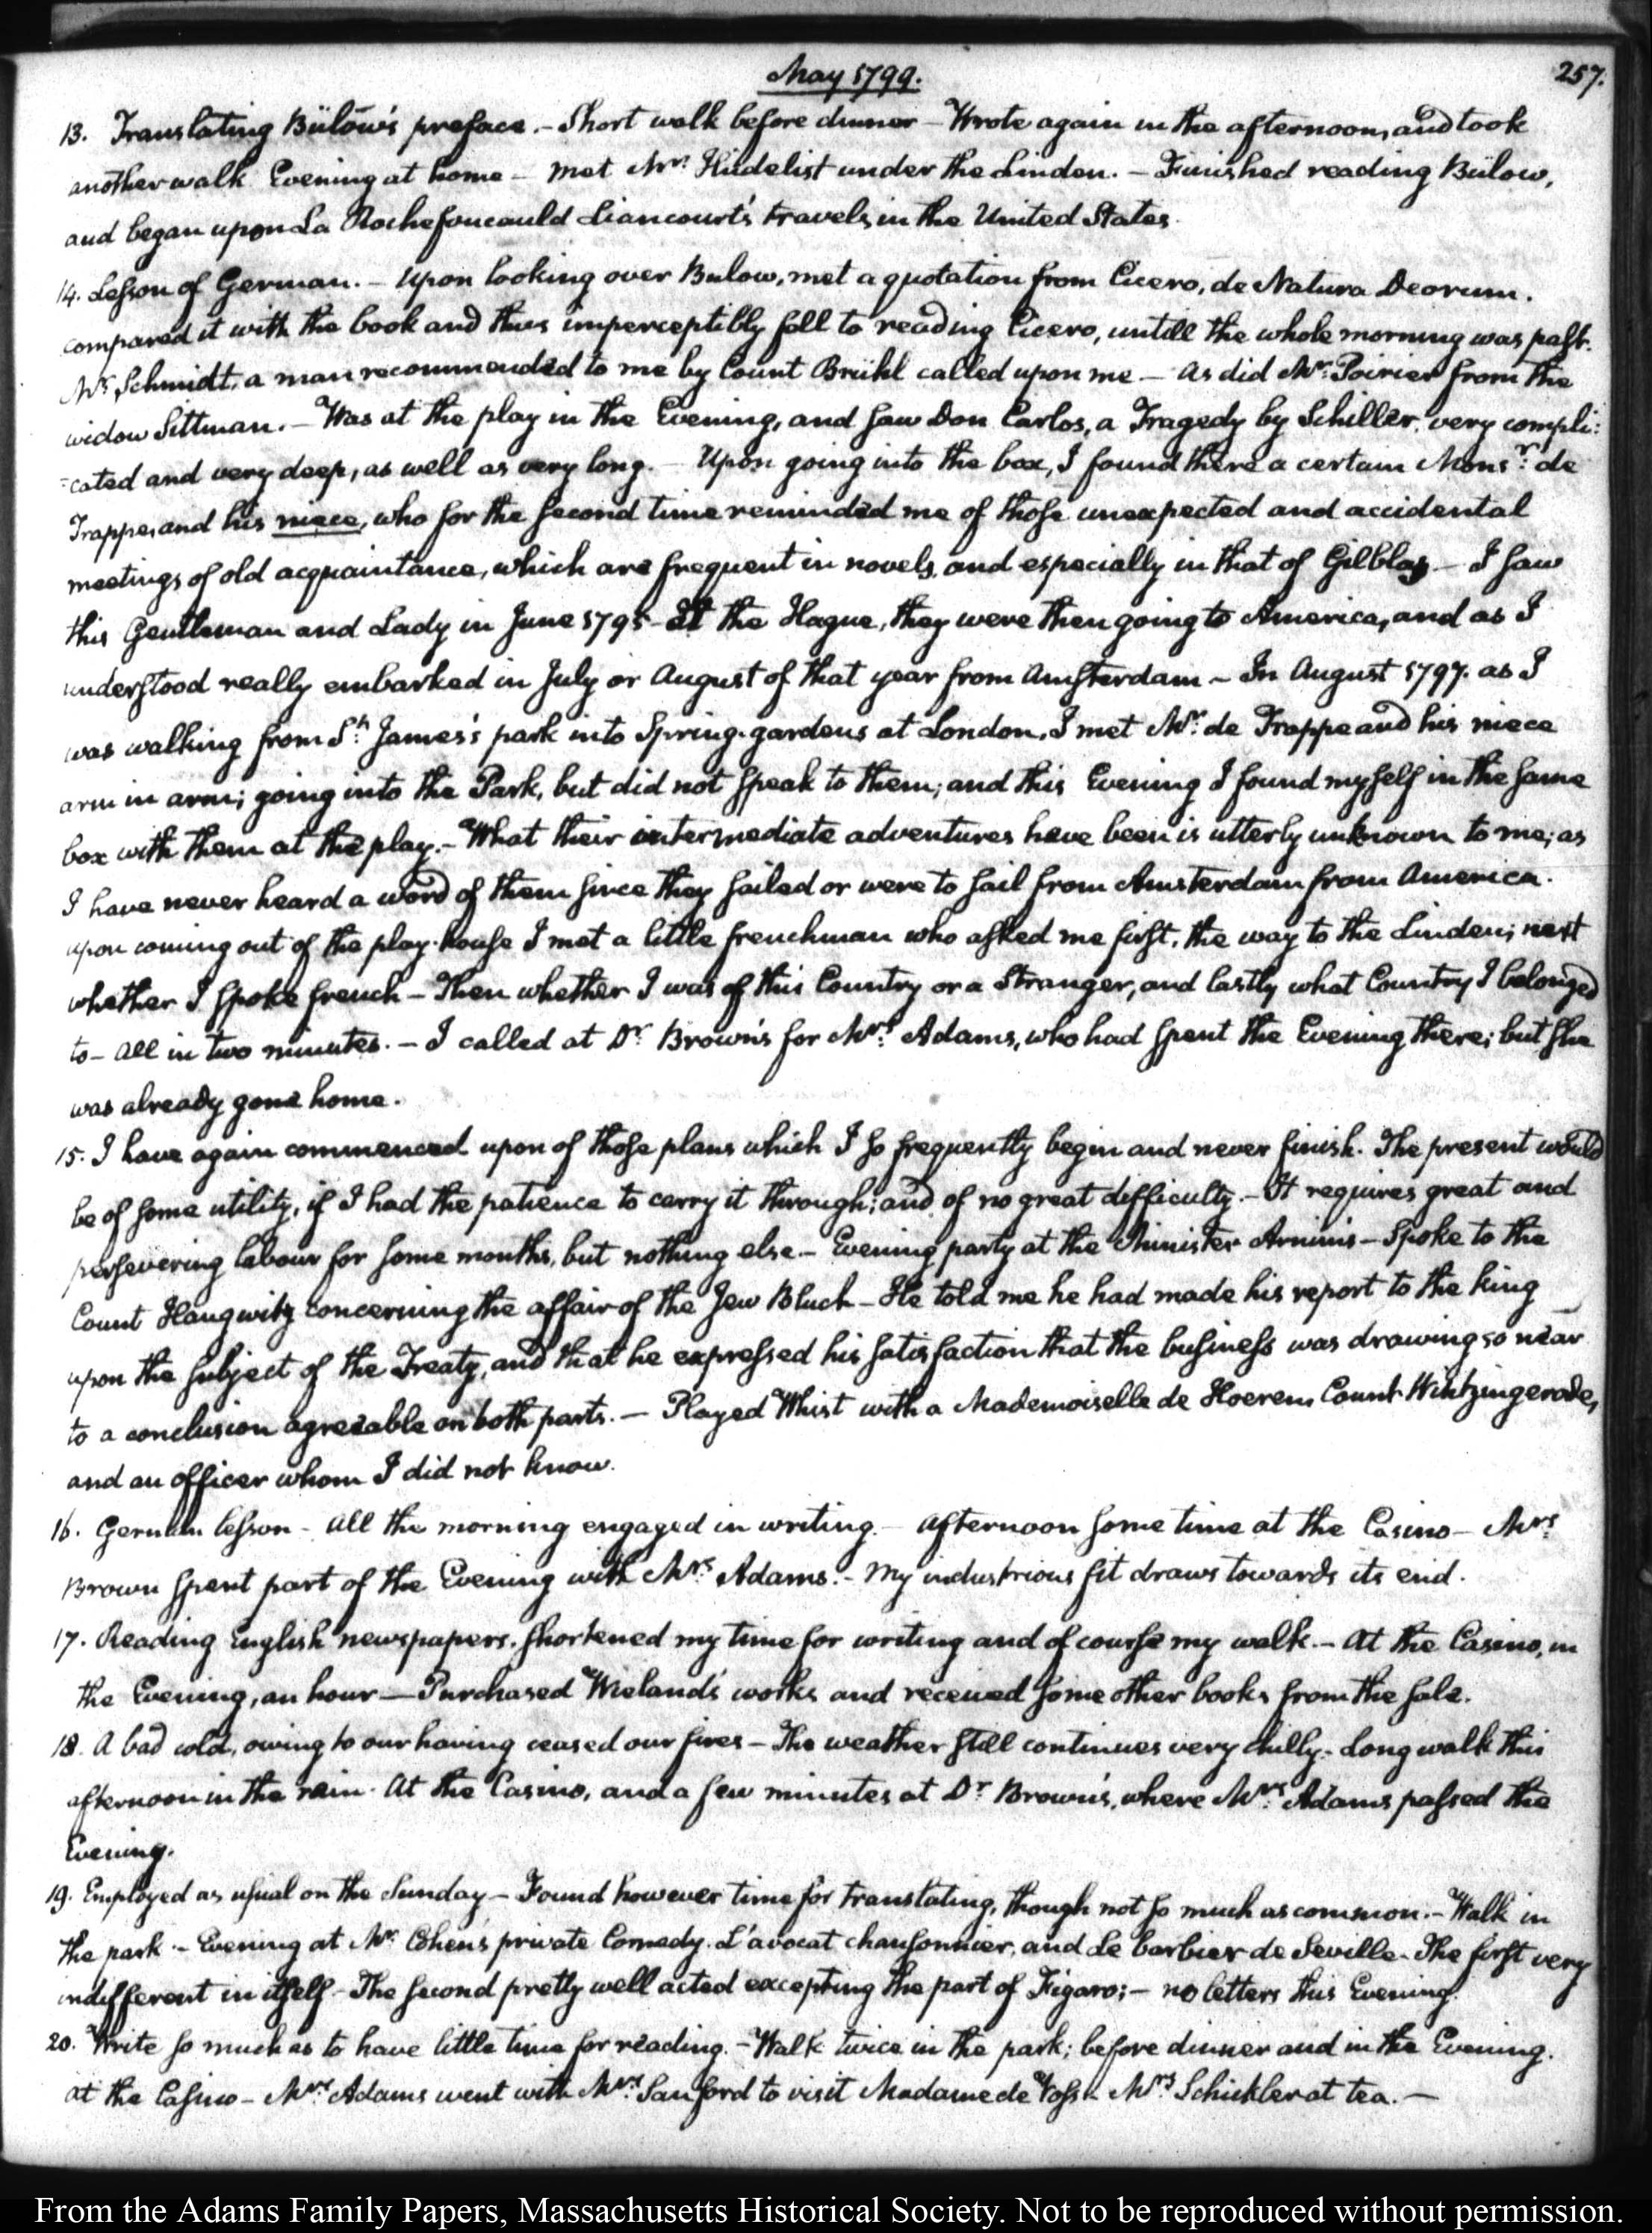 May 1799.
257.
13. Translating Bülow's preface. – Short walk before dinner – Wrote again in the afternoon, and took
another walk Evening at home – met Mrs. Hüdelist under the Linden. – Finished reading Bülow,
and began upon La Rochefoucauld Liancourt's travels in the United States.
14. Lesson of German. – Upon looking over Bulow, met a quotation from Cicero, de Natura Deorum.
compared it with the book and thus imperceptibly fell to reading Cicero, untill the whole morning was past.
Mr. Schmidt, a man recommended to me by Count Brühl called upon me – as did Mr. Poirier from the
widow Sittman. – Was at the play in the Evening, and saw Don Carlos, a Tragedy by Schiller. very compli:
:cated and very deep, as well as very long. – Upon going into the box, I found there a certain Monsr. de
Trappe, and his niece, who for the second time reminded me of those unexpected and accidental
meetings of old acquaintance, which are frequent in novels, and especially in that of Gilblas – I saw
this Gentleman and Lady in June 1795 at the Hague, they were then going to America, and as I
understood really embarked in July or August of that year from Amsterdam – In August 1797. as I
was walking from St. James's park into Spring-gardens at London, I met Mr. de Trappe and his niece
arm in arm; going into the Park, but did not speak to them; and this Evening I found myself in the same
box with them at the play. – What their intermediate adventures have been is utterly unknown to me; as
I have never heard a word of them since they sailed or were to sail from Amsterdam from America.
upon coming out of the play-house I met a little frenchman who asked me first, the way to the Linden; next
whether I spoke french – Then whether I was of this Country or a Stranger, and lastly what Country I belonged
to – All in two minutes. – I called at Dr. Brown's for Mrs. Adams, who had spent the Evening there; but she
was already gone home.
15. I have again commenced upon of those plans which I so frequently begin and never finish. The present would
be of some utility, if I had the patience to carry it through; and of no great difficulty. – It requires great and
persevering labour for some months, but nothing else. – Evening party at the Minister Arnim's – Spoke to the
Count Haugwitz concerning the affair of the Jew Bluch – He told me he had made his report to the king
upon the subject of the Treaty, and that he expressed his satisfaction that the business was drawing so near
to a conclusion agreeable on both parts. – Played Whist with a Mademoiselle de Hoeren, Count Wintzingerode,
and an officer whom I did not know.
16. German lesson – All the morning engaged in writing. – Afternoon some time at the Casino – Mrs.
Brown spent part of the Evening with Mrs. Adams. – My industrious fit draws towards its end.
17. Reading English newspapers. shortened my time for writing and of course my walk. – At the Casino, in
the Evening, an hour – Purchased Wieland's works and received some other books from the sale.
18. A bad cold, owing to our having ceased our fires – The weather still continues very chilly – Long walk this
afternoon in the rain. At the Casino, and a few minutes at Dr. Brown's, where Mrs. Adams passed the
Evening.
19. Employed as usual on the Sunday – Found however time for translating, though not so much as common. – Walk in
the park. – Evening at Mr. Cohen's private Comedy. L'avocat chansonnier, and Le barbier de Seville – The first very
indifferent in itself – The second pretty well acted excepting the part of Figaro; – no letters this Evening.
20. Write so much as to have little time for reading. – Walk twice in the park; before dinner and in the Evening.
at the Casino – Mrs. Adams went with Mrs. Sanford to visit Madame de Voss – Mrs. Schickler at tea. –
From the Adams Family Papers, Massachusetts Historical Society. Not to be reproduced without permission.